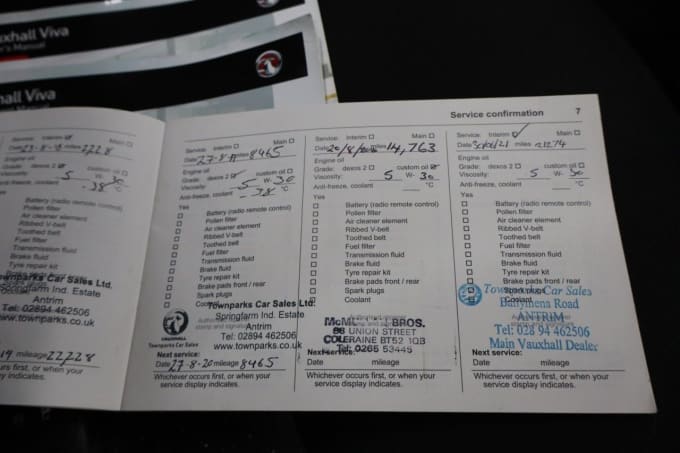 uxhall Viva
er's Manual
hall Viva
Service confirmation 7
Service: Interim
Main
Date 23-8-18 miles 2,228
Engine oil
Grade: dexos 2
custom oil
Viscosity: 5 W- 30
Anti-freeze, coolant -38 °C
Yes
Battery (radio remote control)
Pollen filter
Air cleaner element
Ribbed V-belt
Toothed belt
Fuel filter
Transmission fluid
Brake fluid
Tyre repair kit
Townparks Car Sales Ltd.
Springfarm Ind. Estate
Antrim
Tel: 02894 462506
www.townparks.co.uk
19 mileage 22,228
urs first, or when your
service display indicates.
Service: Interim
Main
Date 27-8-19 miles 8465
Engine oil
Grade: dexos 2
custom oil
Viscosity: 5 W- 30
Anti-freeze, coolant -38 °C
Yes
Battery (radio remote control)
Pollen filter
Air cleaner element
Ribbed V-belt
Toothed belt
Fuel filter
Transmission fluid
Brake fluid
Tyre repair kit
Brake pads front / rear
Spark plugs
Coolant
Townparks Car Sales Ltd.
Springfarm Ind. Estate
Antrim
Tel: 02894 462506
www.townparks.co.uk
VAUXHALL
Townparks Car Sales
Next service:
Date 27-8-20 mileage 8465
Whichever occurs first, or when your
service display indicates.
Service: Interim
Main
Date 20/8/2020 miles 14,763
Engine oil
Grade: dexos 2
custom oil
Viscosity: 5 W- 30
Anti-freeze, coolant °C
Yes
Battery (radio remote control)
Pollen filter
Air cleaner element
Ribbed V-belt
Toothed belt
Fuel filter
Transmission fluid
Brake fluid
Tyre repair kit
Brake pads front / rear
Spark plugs
Coolant
BROS.
UNION STREET
COLERAINE BT52 1QB
Tel: 0265 53445
Next service:
Date mileage
Whichever occurs first, or when your
service display indicates.
Service: Interim
Main
Date miles
Engine oil
Grade: dexos 2
custom oil
Viscosity: 5 W- 30
Anti-freeze, coolant °C
Yes
Battery (radio remote control)
Pollen filter
Air cleaner element
Ribbed V-belt
Toothed belt
Fuel filter
Transmission fluid
Brake fluid
Tyre repair kit
Brake pads front / rear
Spark plugs
Coolant
Townparks Car Sales
Ballymena Road
ANTRIM
Tel: 028 94 462506
Main Vauxhall Dealer
Next service:
Date mileage
Whichever occurs first, or when your
service display indicates.